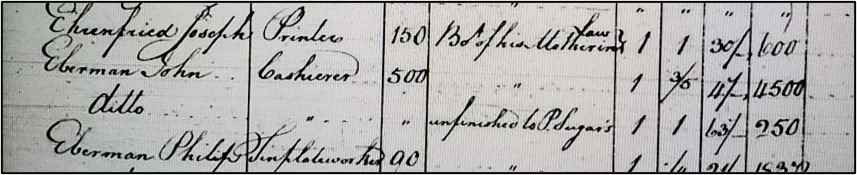 Ehrenfried Joseph Printer 150 Bot of his Mother in Law 1 1 30/ 600
Eberman John Cashierer 500 " 1 3/5 47/ 4500
ditto " " unfinished to P. Sugars 1 1 63/ 250
Eberman Philip Tinplateworker 90 " 1